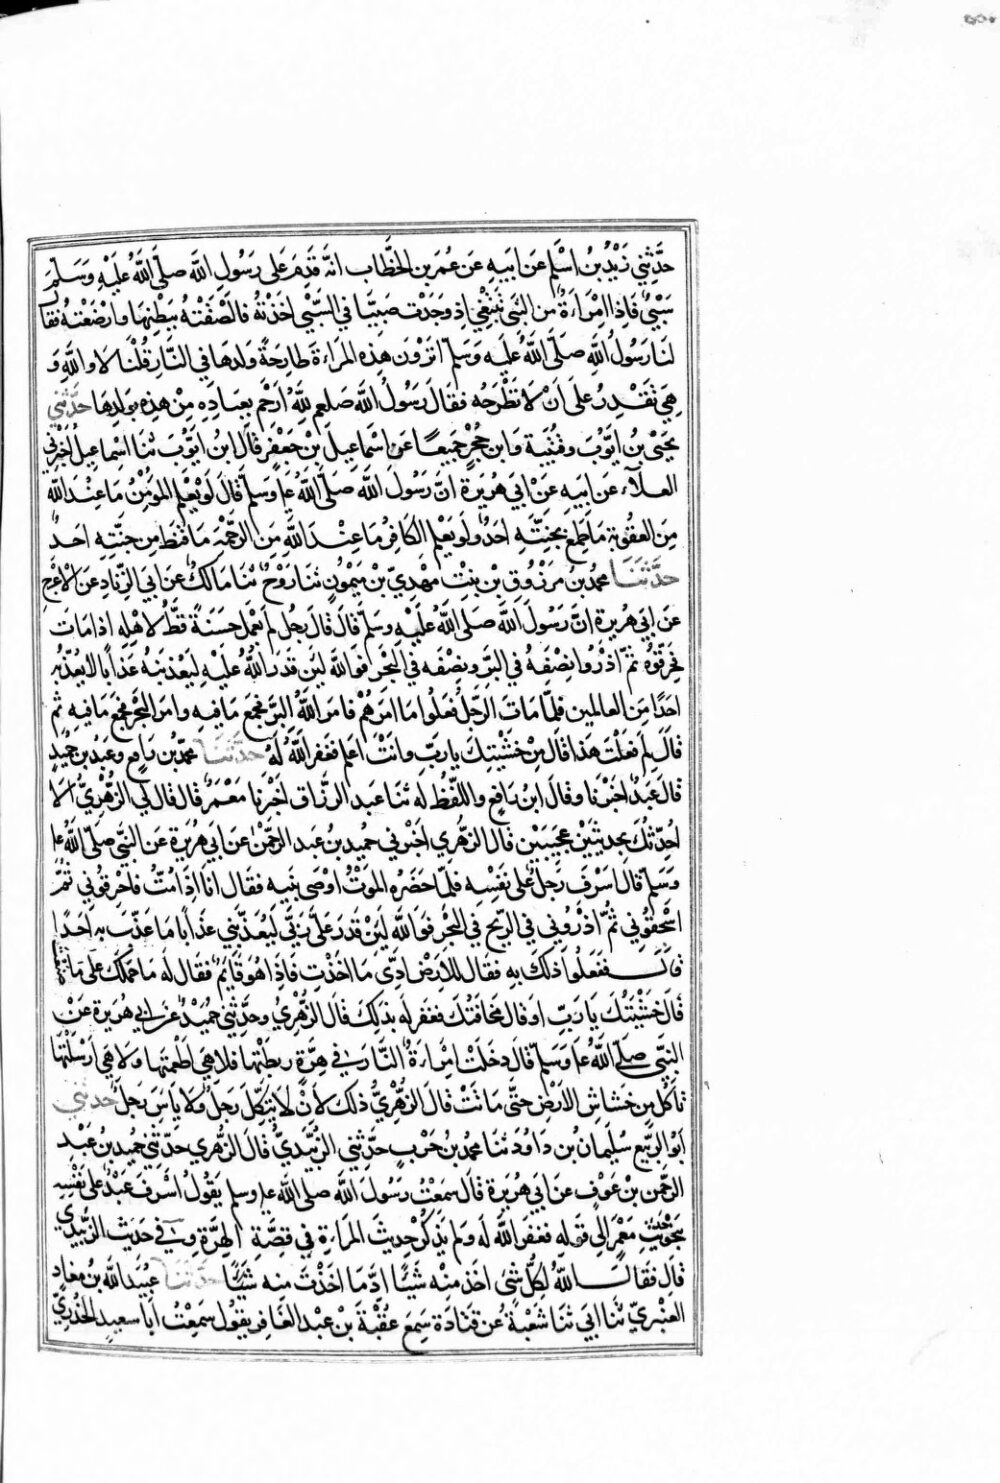 حدَّثني زَيْدُ بنُ اَسْلَم عَن اَبيهِ عَن عُمَر بن الخطَّاب انّه قَدِمَ عَلى رَسُولِ الله صلَّى اللهُ عَليْهِ وَسَلّمَ
سَبْيٌ فَاِذا اِمْرَاءَةٌ مِنَ السَّبي تَبْتَغِي اِذ وجَدَت صَبيًّا في السَّبْيِ اَخَذَتْهُ فالصَقتهُ بِبَطْنِهَا وارْضَعَتْهُ فقا
لنا رَسُولُ اللهِ صَلّى اللهُ عَليْهِ وَسَلّم اَتَرَوْنَ هذِهِ المَراءَةَ طَارِحَةً وَلدهَا في النَّارِ قُلْنَا لَا واللهِ وَ
هِيَ تَقْدِرُ عَلَى اَنْ لا تَطْرَحَهُ فقَالَ رَسُولُ الله صَلعم للّهُ اَرْحَم بعِبَادِهِ مِنْ هذِهِ بِوَلدِهَا حدَّثني
يحيَى بن ايّوُبَ وقُتَيبة وَابن حُجْرٍ جَمِيعًا عَن اسْمَاعيلَ بن جَعْفَر قالَ ابن ايّوبَ ثنا اِسماعيلُ اَخبَرَني
العلَاءُ عن ابيهِ عَنْ اَبي هُرَيرَة انّ رَسُولَ الله صَلّى اللهُ ع وسَلّم قالَ لَو يَعْلم المؤمِنُ مَا عِنْدَ الله
مِنَ العقُوبَة مَا طَمِعَ بجَنّتِهِ احَدٌ ولَو يَعْلم الكافِرُ مَا عِنْدَ اللهِ مِن الرّحْمَة مَا قَنَط مِن جَنّتِهِ احَدٌ
حدَّثَنَا محمدُ بن مَرزوُق بن بنتِ مَهْدِيّ بن مَيْمُونٍ ثنا رَوْحٌ ثنا مَالكٌ عَن ابي الزّنادِ عَن الْاَعْرَج
عَن ابي هُريرة انّ رَسُولَ الله صَلّى اللهُ عَلَيْهِ وسَلّم قَالَ قَالَ رَجُل لم يَعْمَل حَسَنَةً قَطُّ لِاَهْلِهِ اِذا مَات
فحَرّقُوهُ ثمّ اذْرُوا نِصْفَهُ في البَرّ ونِصْفَه في البَحْرِ فوَالله لَئِن قَدَر اللهُ عَلَيْهِ لَيُعَذّبَنّهُ عَذَابًا لا يُعَذّبُه
احَدًا مِنَ العالمين فلمّا مَاتَ الرّجُل فَعَلوا مَا اَمَرَهُمْ فامَر اللهُ البَرّ فجمَع مَا فيهِ وامَر البَحْر فجمَع مَا فيهِ ثم
قالَ لِم فَعَلْتَ هَذا قالَ مِنْ خَشْيَتِكَ يا رَبّ وَانتَ اَعلم فغَفر اللهُ لَهُ حدّثَنَا محمّدُ بن رَافع وعَبْدُ بن حُمَيدٍ
قالَ عَبدٌ اَخبَرنا وقال ابنُ رَافعٍ واللّفظُ له ثنا عَبد الرزّاق اَخْبَرَنا مَعْمَر قالَ قال لي الزّهْرِيُّ الا
اُحدّثكَ بحَديثَيْن عَجِيبَيْن قال الزّهْري اَخبَرني حُمَيد بنُ عَبد الرّحمن عَن ابي هُرَيرة عَن النّبيّ صَلّى اللهُ ع
وَسَلم قال اَسْرفَ رَجُلٌ عَلى نَفسِهِ فَلمّا حَضَرَهُ المَوْتُ اَوْصَى بَنيهِ فقَال اذا انا مُتُّ فَاحرِقُوني ثمّ
اسْحَقُوني ثمّ اذْرُوني في الرّيح في البَحْر فوَالله لَئِن قَدَر عَلَيّ رَبّي لَيُعَذّبَني عَذابًا مَا عَذّبَ به احَدًا
قَالَ فَفعَلوا ذلكَ بهِ فقَال للاَرْض اَدّي مَا اَخَذتِ فَاِذا هُوَ قائمٌ فقالَ لَه مَا حَملَك عَلى مَا
قالَ خَشْيَتُكَ يا رَبِّ او قال مَخافتُك فغفر لَه بذلكَ قال الزّهْري وحَدّثني حُمَيْدٌ عَن ابي هُريرة عَنْ
النّبيّ صلّى اللهُ ع وَسَلّم قال دخَلتْ امْرَاءَةٌ النّارَ في هِرّةٍ رَبطتها فلا هِيَ اَطْعَمَتها وَلا هِيَ اَرْسَلَتها
تاكُل مِن خَشاشِ الاَرْض حتّى مَاتتْ قالَ الزّهْريُّ ذلكَ لاَنْ لا يَتّكِل رَجُل ولا يَايَسَ رَجلٌ حدثني
اَبُو الرّبيع سُليمان بن دَاوُدَ ثنا محمد بن حَرْبٍ حدّثني الزّبَيْديُّ قالَ الزّهْري حَدّثني حُمَيد بن عَبْدِ
الرّحمن بن عَوْفٍ عَن ابي هُريرة قالَ سمعْتُ رسُولَ الله صلى الله ع وسلم يَقُولُ اسْرفَ عَبْدٌ على نَفْسِهِ
بنَحو حَديثِ مَعْمَر الى قوله فغفَر اللهُ لَهُ وَلم يَذكُر حَديثَ المَراءَةِ في قصّةِ الهِرّة وفي حَديث الزّبيدي
قال فقَالَ اللهُ لِكُلّ شيءٍ اَخذ منهُ شَيئًا ادِّ مَا اَخَذْتَ مِنه شَيئًا حدّثَنَا عبَيدُ الله بن مُعاذٍ
العَنْبَريّ ثنا ابي ثنا شعْبَة عَن قَتَادَة سَمعَ عُقْبَة بن عَبْد الغَافِر يقُول سَمعْتُ ابا سَعيدٍ الخُدريّ